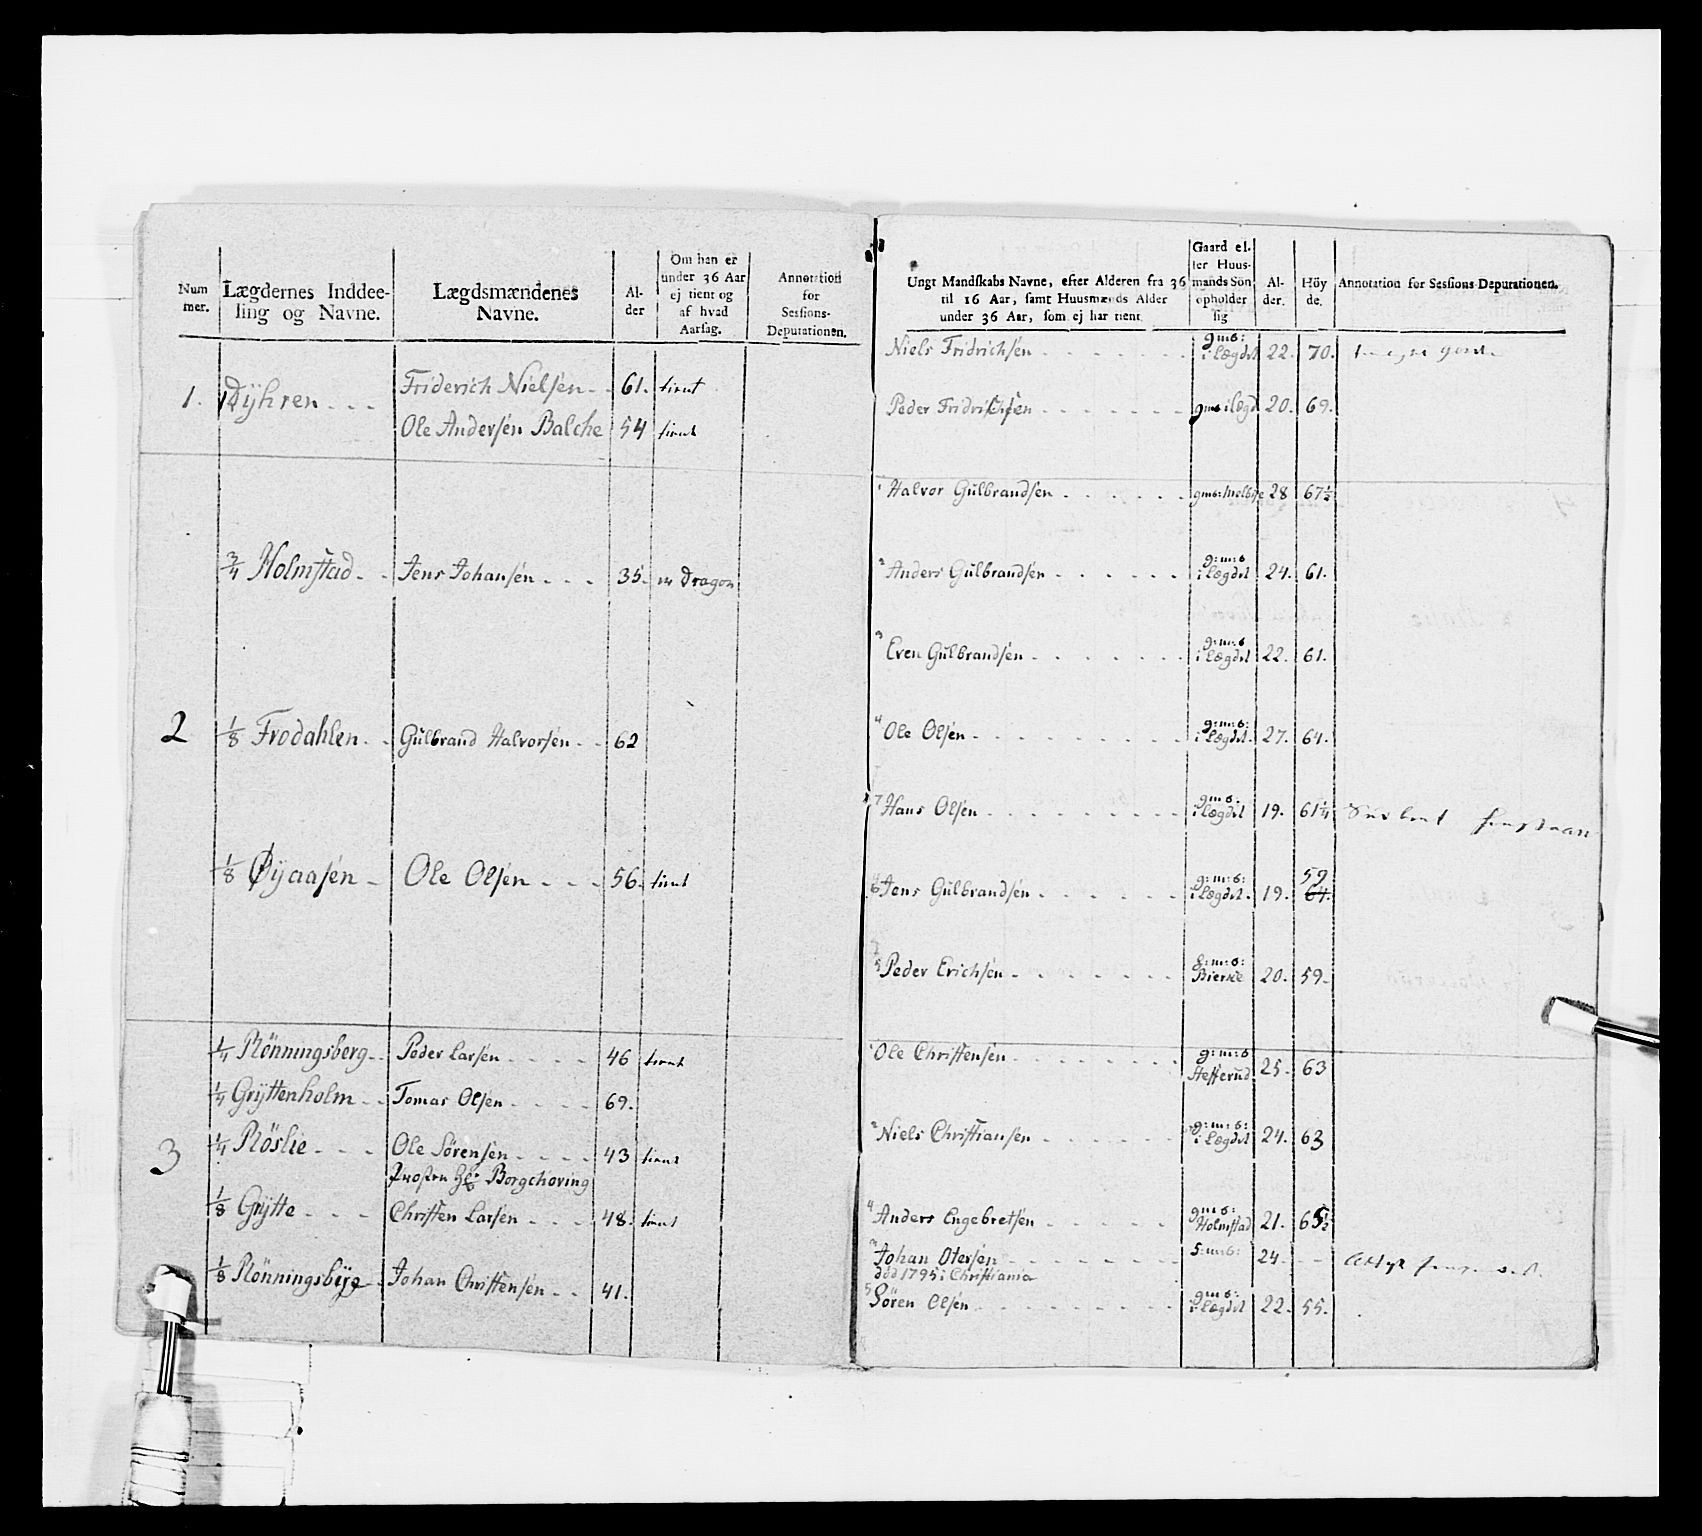 Num mer.
Lægdernes Inddee-
ling og Navne.
Lægdsmændenes
Navne.
Al-
der
Om han er
under 36 Aar
ej tient og
af hvad
Aarsag.
Annotation
for
Sessions-
Deputationen.
1. Dÿhren
Friderich Nielsen 61. tient
Ole Andersen Balche 54 tient
2
3/4 Holmstad Jens Johansen 35. Dragon
1/8 Frodahlen Gulbrand Halvorsen 62
1/8 Øÿaasen Ole Olsen 56. tient
3
1/4 Rönningsberg Peder Larsen 46 tient
1/4 Grÿttenholm Tomas Olsen 69.
1/4 Röslie Ole Sörensen 43 tient
Borgchoving
1/8 Grÿtte Christen Larsen 48. tient
1/8 Rönningsbÿe Johan Christensen 41.
Ungt Mandskabs Navne, efter Alderen fra 36
til 16 Aar, samt Huusmænds Alder
under 36 Aar, som ej har tient.
Gaard el-
ler Huus-
mands Søn
opholder
sig
Al-
der.
Höy
de.
Annotation for Sessions-Deputationen.
Niels Fridrichsen gms: i Lægdet 22. 70.
Peder Fridrichsen gms i Lægd 20. 69.
1 Halvor Gulbrandsen gms: Melbÿe 28 67 1/2
2 Anders Gulbrandsen g:m:s i Lægdet 24. 61.
3 Even Gulbrandsen g:m:s i Lægdet 22. 61.
4 Ole Olsen g:m:s: i Lægdet. 27. 64.
7 Hans Olsen gms: i Lægdet 19. 61 1/4
6 Jens Gulbrandsen g:m:s: i Lægdet. 19. 59 64.
5 Peder Erichsen g:m:s: Biersee 20. 59.
1 Ole Christensen g:m:s Hefferud 25. 63
2 Niels Christiansen g:m:s: i Lægdet 24. 63
4 Anders Engebretsen gms: Holmstad 21. 65 1/2
3 Johan Otersen s:m:s: 24.
död 1795 i Christiania
5 Sören Olsen gms: i Lægdet 22. 55.